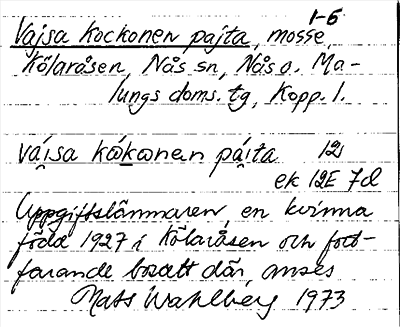 1-5
Vajsa kockonen pajta, mosse,
Kölaråsen, Nås sn, Nås o. Ma-
lungs doms. tg, Kopp. l.
váisa kὼkωnen páita 12
ek 12E 7d
Uppgiftslämnaren, en kvinna
född 1927 i Kölaråsen och fort-
farande bosatt där, anses
Mats Wahlberg 1973